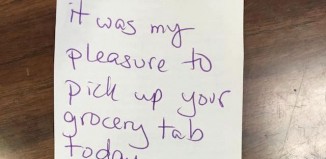 it was my
pleasure to
pick up your
grocery tab
today